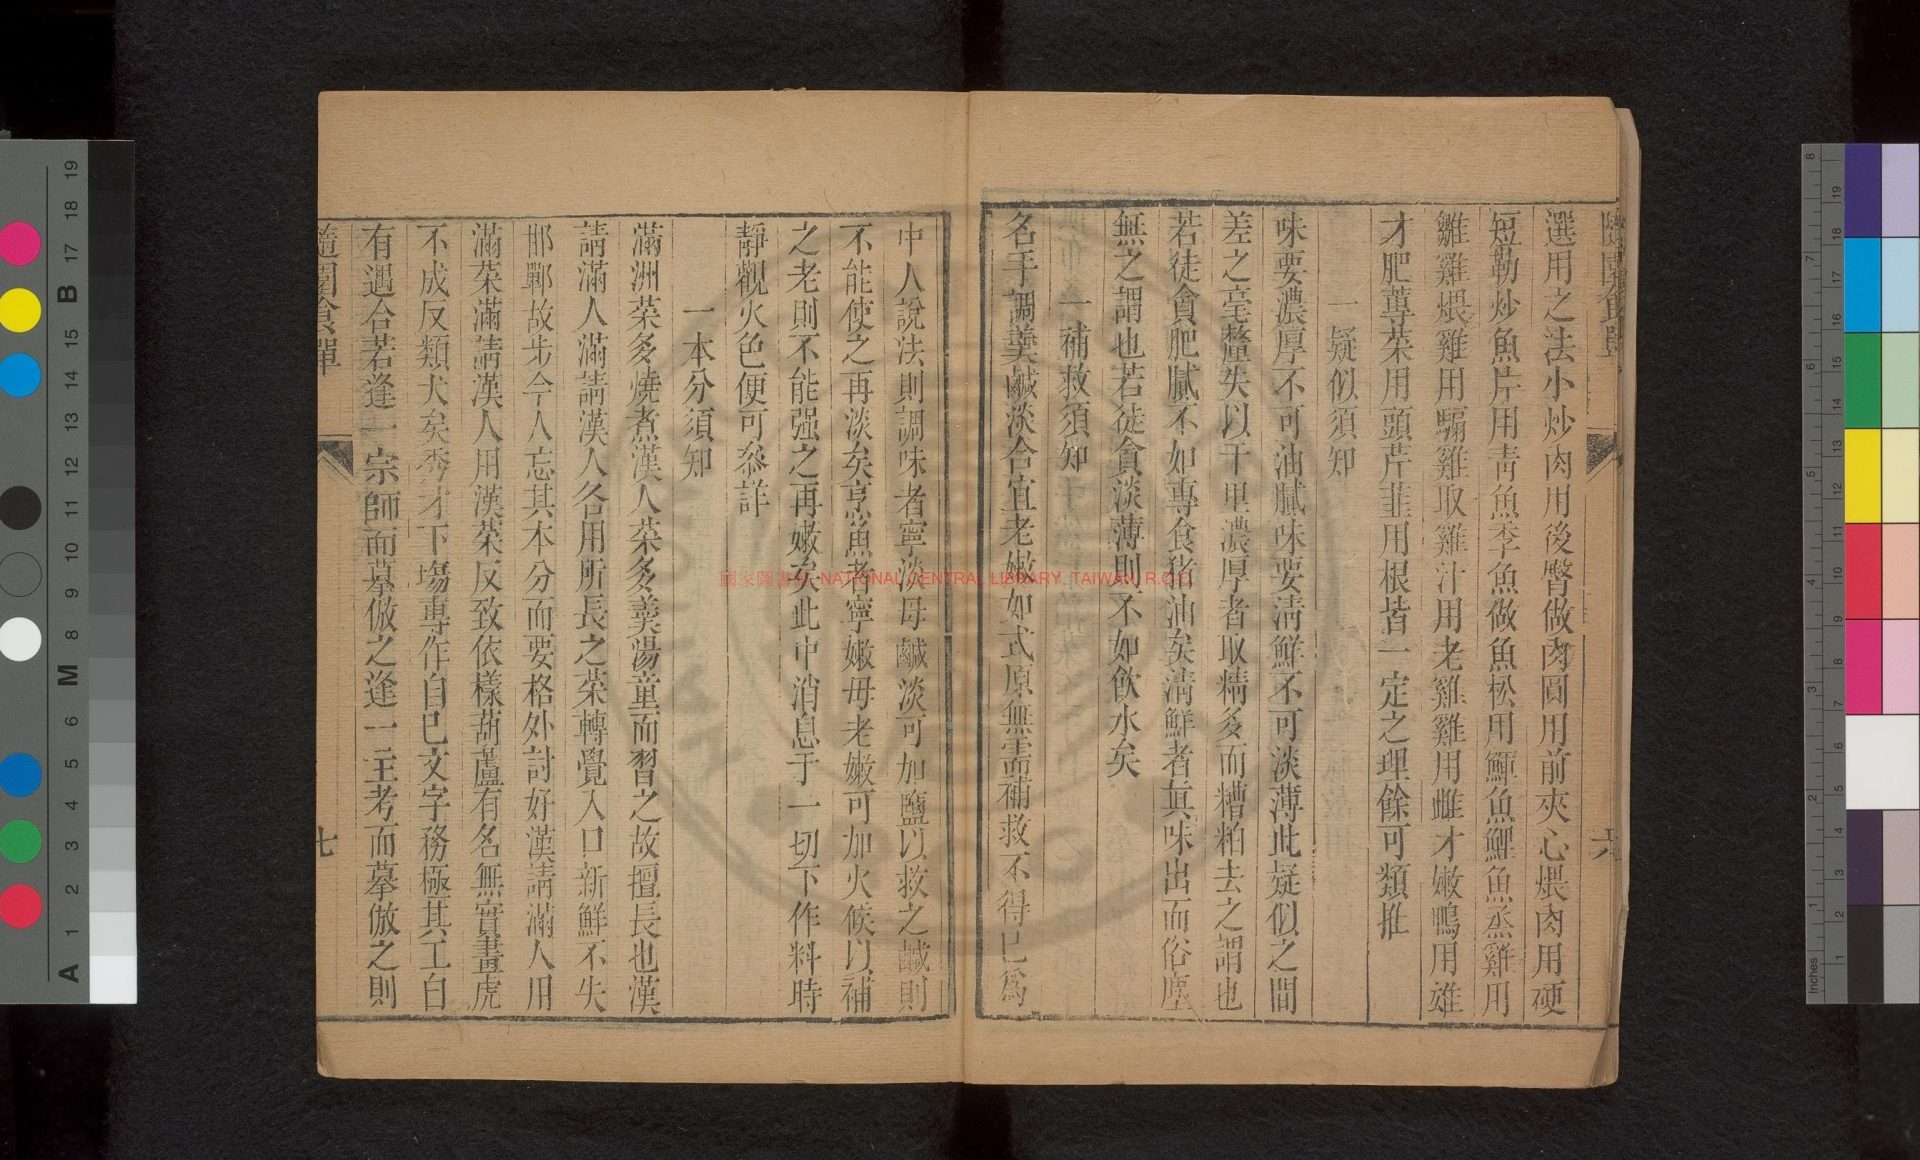 選用之法小炒肉用後臀做肉圓用前夾心煨肉用硬
短勒炒魚片用青魚季魚做魚松用鯶魚鯉魚蒸雞用
雛雞煨雞用騸雞取雞汁用老雞雞用雌才嫩鴨用雄
才肥蓴菜用頭芹韭用根皆一定之理餘可類推
一疑似須知
味要濃厚不可油膩味要清鮮不可淡薄此疑似之間
差之毫釐失以千里濃厚者取精多而糟粕去之謂也
若徒貪肥膩不如專食猪油矣清鮮者真味出而俗塵
無之謂也若徒貪淡薄則不如飲水矣
一補救須知
名手調羹鹹淡合宜老嫩如式原無需補救不得已為
六
中人說法則調味者寧淡毋鹹淡可加鹽以救之鹹則
不能使之再淡矣烹魚者寧嫩毋老嫩可加火候以補
之老則不能强之再嫩矣此中消息于一切下作料時
靜觀火色便可參詳
一本分須知
滿洲菜多燒煮漢人菜多羹湯童而習之故擅長也漢
請滿人滿請漢人各用所長之菜轉覺入口新鮮不失
邯鄲故步今人忘其本分而要格外討好漢請滿人用
滿菜滿請漢人用漢菜反致依樣葫蘆有名無實畫虎
不成反類犬矣秀才下場專作自己文字務極其工自
有遇合若逢一宗師而摹倣之逢一主考而摹倣之則
隨園食單
七
國家圖書館 NATIONAL CENTRAL LIBRARY, TAIWAN, R.O.C